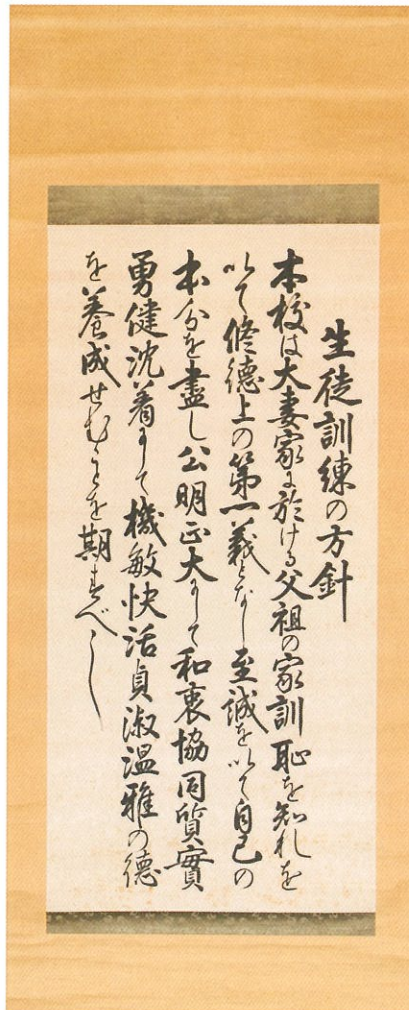 生徒訓練の方針
本校は大妻家に於ける父祖の家訓恥を知れを
以て修徳上の第一義となし至誠を以て自己の
本分を盡し公明正大にして和衷協同質實
勇健沈着にして機敏快活貞淑温雅の徳
を養成せむことを期すべし